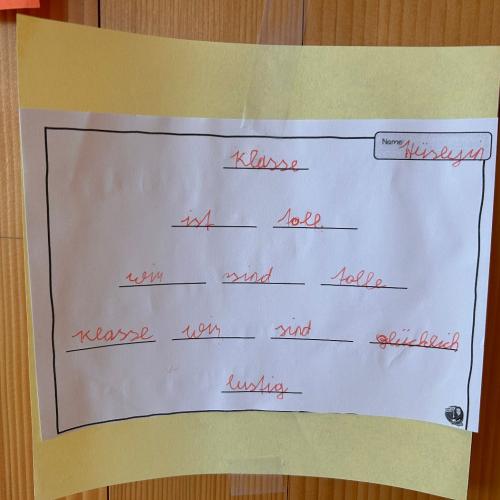 Name: Hüseyin
Klasse
ist toll
wir sind tolle
klasse wir sind glücklich
lustig